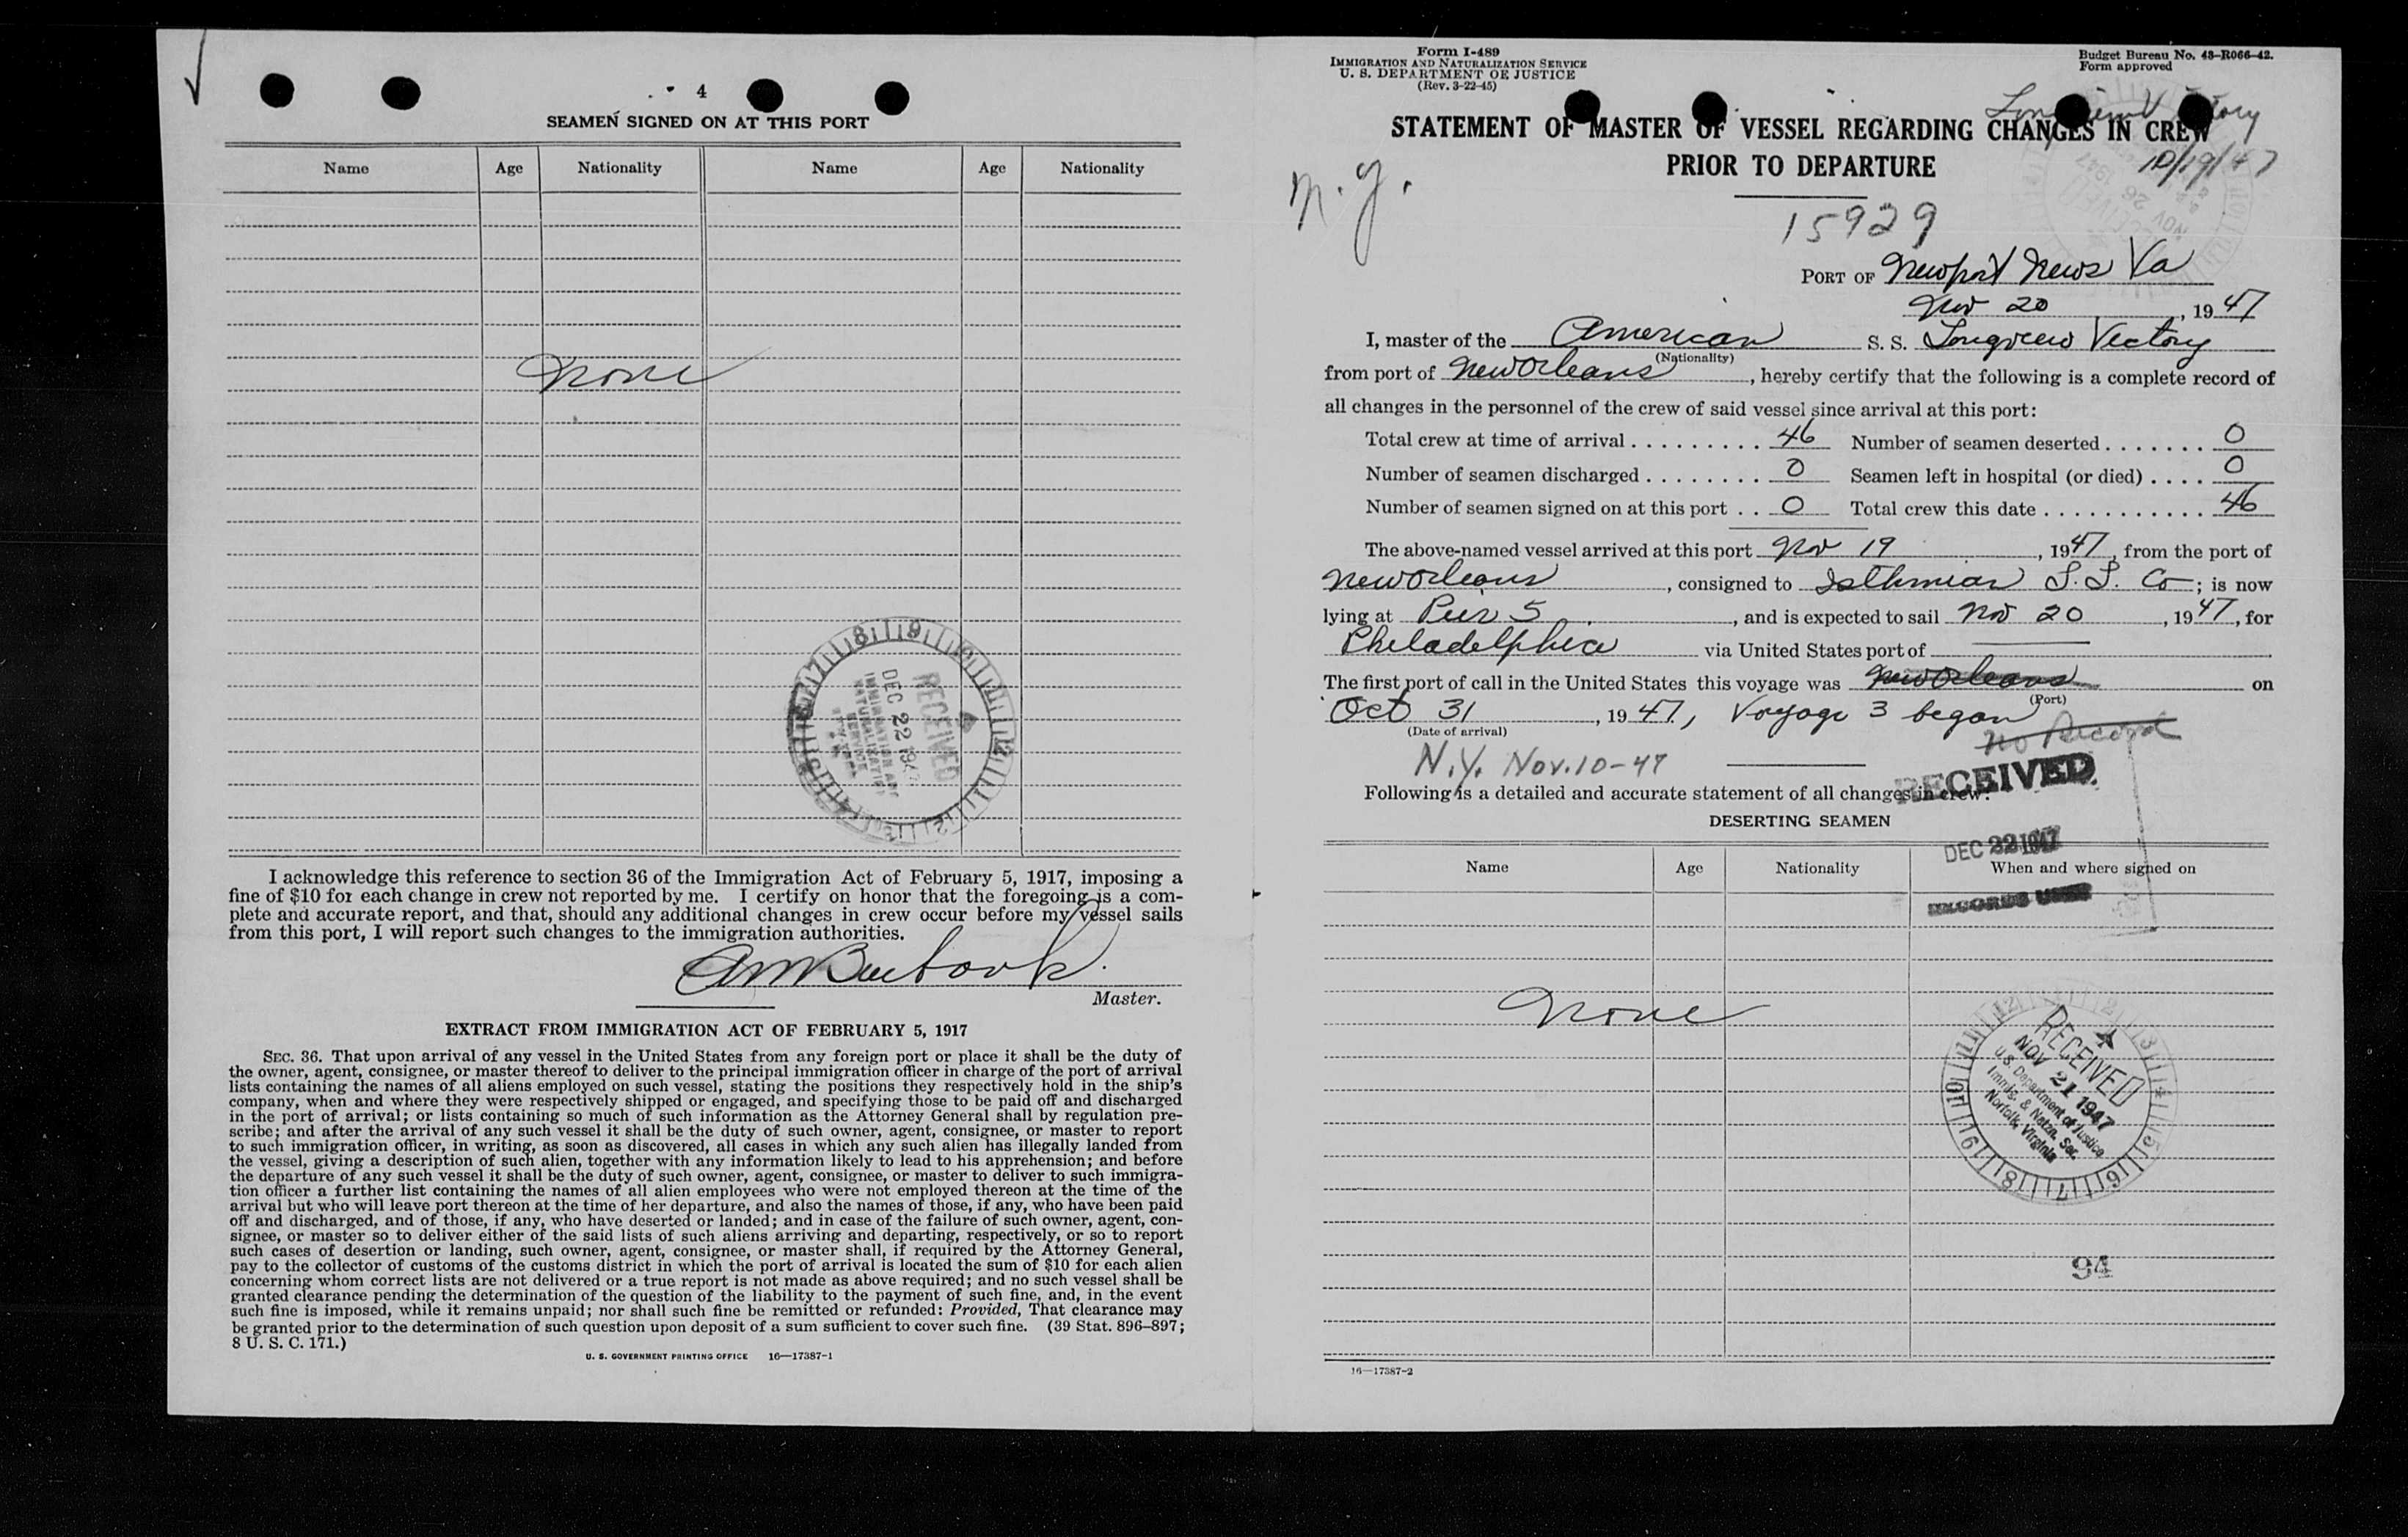 4
SEAMEN SIGNED ON AT THIS PORT
Name Age Nationality Name Age Nationality
None
RECEIVED
DEC 22 194
IMMIGRATION AND
NATURALIZATION
SERVICE
I acknowledge this reference to section 36 of the Immigration Act of February 5, 1917, imposing a
fine of $10 for each change in crew not reported by me. I certify on honor that the foregoing is a com-
plete and accurate report, and that, should any additional changes in crew occur before my vessel sails
from this port, I will report such changes to the immigration authorities.
Master.
EXTRACT FROM IMMIGRATION ACT OF FEBRUARY 5, 1917
SEC. 36. That upon arrival of any vessel in the United States from any foreign port or place it shall be the duty of
the owner, agent, consignee, or master thereof to deliver to the principal immigration officer in charge of the port of arrival
lists containing the names of all aliens employed on such vessel, stating the positions they respectively hold in the ship's
company, when and where they were respectively shipped or engaged, and specifying those to be paid off and discharged
in the port of arrival; or lists containing so much of such information as the Attorney General shall by regulation pre-
scribe; and after the arrival of any such vessel it shall be the duty of such owner, agent, consignee, or master to report
to such immigration officer, in writing, as soon as discovered, all cases in which any such alien has illegally landed from
the vessel, giving a description of such alien, together with any information likely to lead to his apprehension; and before
the departure of any such vessel it shall be the duty of such owner, agent, consignee, or master to deliver to such immigra-
tion officer a further list containing the names of all alien employees who were not employed thereon at the time of the
arrival but who will leave port thereon at the time of her departure, and also the names of those, if any, who have been paid
off and discharged, and of those, if any, who have deserted or landed; and in case of the failure of such owner, agent, con-
signee, or master so to deliver either of the said lists of such aliens arriving and departing, respectively, or so to report
such cases of desertion or landing, such owner, agent, consignee, or master shall, if required by the Attorney General,
pay to the collector of customs of the customs district in which the port of arrival is located the sum of $10 for each alien
concerning whom correct lists are not delivered or a true report is not made as above required; and no such vessel shall be
granted clearance pending the determination of the question of the liability to the payment of such fine, and, in the event
such fine is imposed, while it remains unpaid; nor shall such fine be remitted or refunded: Provided, That clearance may
be granted prior to the determination of such question upon deposit of a sum sufficient to cover such fine. (39 Stat. 896–897;
8 U. S. C. 171.)
U. S. GOVERNMENT PRINTING OFFICE 16—17387-1
Form I-489
IMMIGRATION AND NATURALIZATION SERVICE
U. S. DEPARTMENT OF JUSTICE
(Rev. 3-22-45)
Budget Bureau No. 43–R066–42.
Form approved
STATEMENT OF MASTER OF VESSEL REGARDING CHANGES IN CREW
PRIOR TO DEPARTURE
10/19/47
N.Y.
15929
PORT OF Newport News Va
Nov 20, 1947
I, master of the American S. S. Longview Victory
(Nationality)
from port of New Orleans, hereby certify that the following is a complete record of
all changes in the personnel of the crew of said vessel since arrival at this port:
Total crew at time of arrival 46 Number of seamen deserted 0
Number of seamen discharged 0 Seamen left in hospital (or died) 0
Number of seamen signed on at this port 0 Total crew this date 46
The above-named vessel arrived at this port Nov 19, 1947, from the port of
New Orleans, consigned to Isthmian S.S. Co; is now
lying at Pier 5, and is expected to sail Nov 20, 1947, for
Philadelphia via United States port of
The first port of call in the United States this voyage was New Orleans on
(Port)
Oct 31, 1947, Voyage 3 began
(Date of arrival)
No Record
N.Y. Nov. 10-47
RECEIVED
Following is a detailed and accurate statement of all changes in crew:
DESERTING SEAMEN
DEC 22 1947
Name Age Nationality When and where signed on
None
RECEIVED
NOV 21 1947
U.S. Department of Justice
Immig. & Natzn. Ser.
Norfolk, Virginia
94
16—17387-2